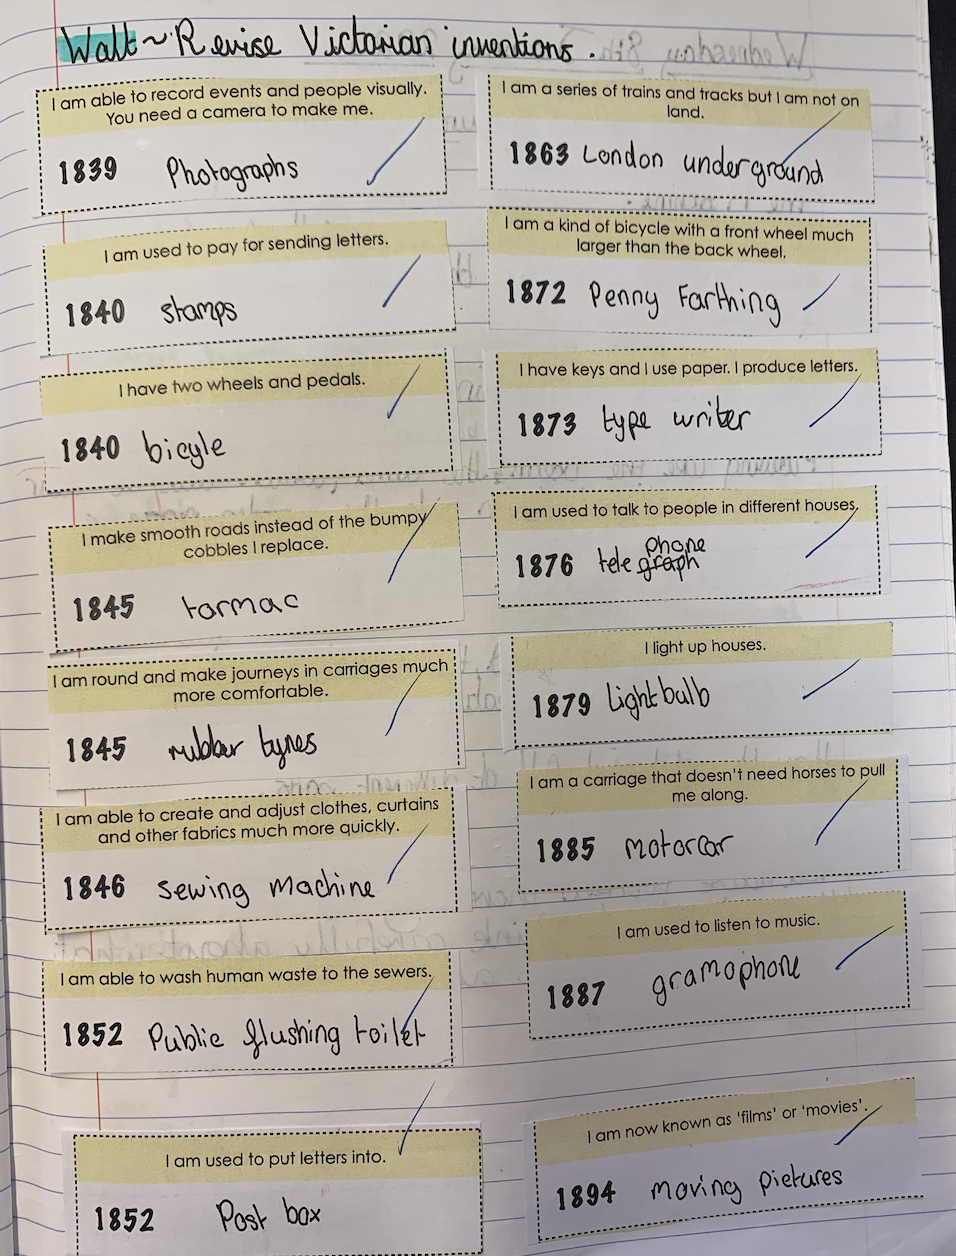 Walt~Revise Victorian inventions.
I am able to record events and people visually.
You need a camera to make me.
1839 Photographs
I am used to pay for sending letters.
1840 stamps
I have two wheels and pedals.
1840 bicyle
I make smooth roads instead of the bumpy
cobbles I replace.
1845 tarmac
I am round and make journeys in carriages much
more comfortable.
1845 rubber tyres
I am able to create and adjust clothes, curtains
and other fabrics much more quickly.
1846 sewing machine
I am able to wash human waste to the sewers.
1852 Public flushing toilet
I am used to put letters into.
1852 Post box
I am a series of trains and tracks but I am not on
land.
1863 London underground
I am a kind of bicycle with a front wheel much
larger than the back wheel.
1872 Penny Farthing
I have keys and I use paper. I produce letters.
1873 type writer
I am used to talk to people in different houses.
phone
1876 tele graph
I light up houses.
1879 Lightbulb
I am a carriage that doesn't need horses to pull
me along.
1885 motorcar
I am used to listen to music.
1887 gramophone
I am now known as 'films' or 'movies'.
1894 moving pictures